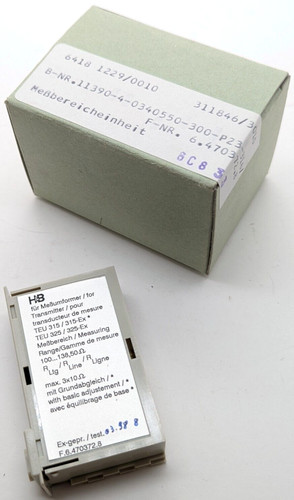 6418 1229/0010 311846/3
B-NR.11390-4-0340550-300-P23
F-NR. 6.4703
Meßbereicheinheit
GCB 3
H&B
für Meßumformer / for
Transmitter / pour
transducteur de mesure
TEU 315 / 315-Ex *
TEU 325 / 325-Ex
Meßbereich / Measuring
Range/Gamme de mesure
100...138,50 Ω
R Ltg / R Line / R Ligne
max. 3x10 Ω
mit Grundabgleich / *
with basic adjustement / *
avec équilibrage de base *
Ex-gepr. / test.
F.6.470372.8